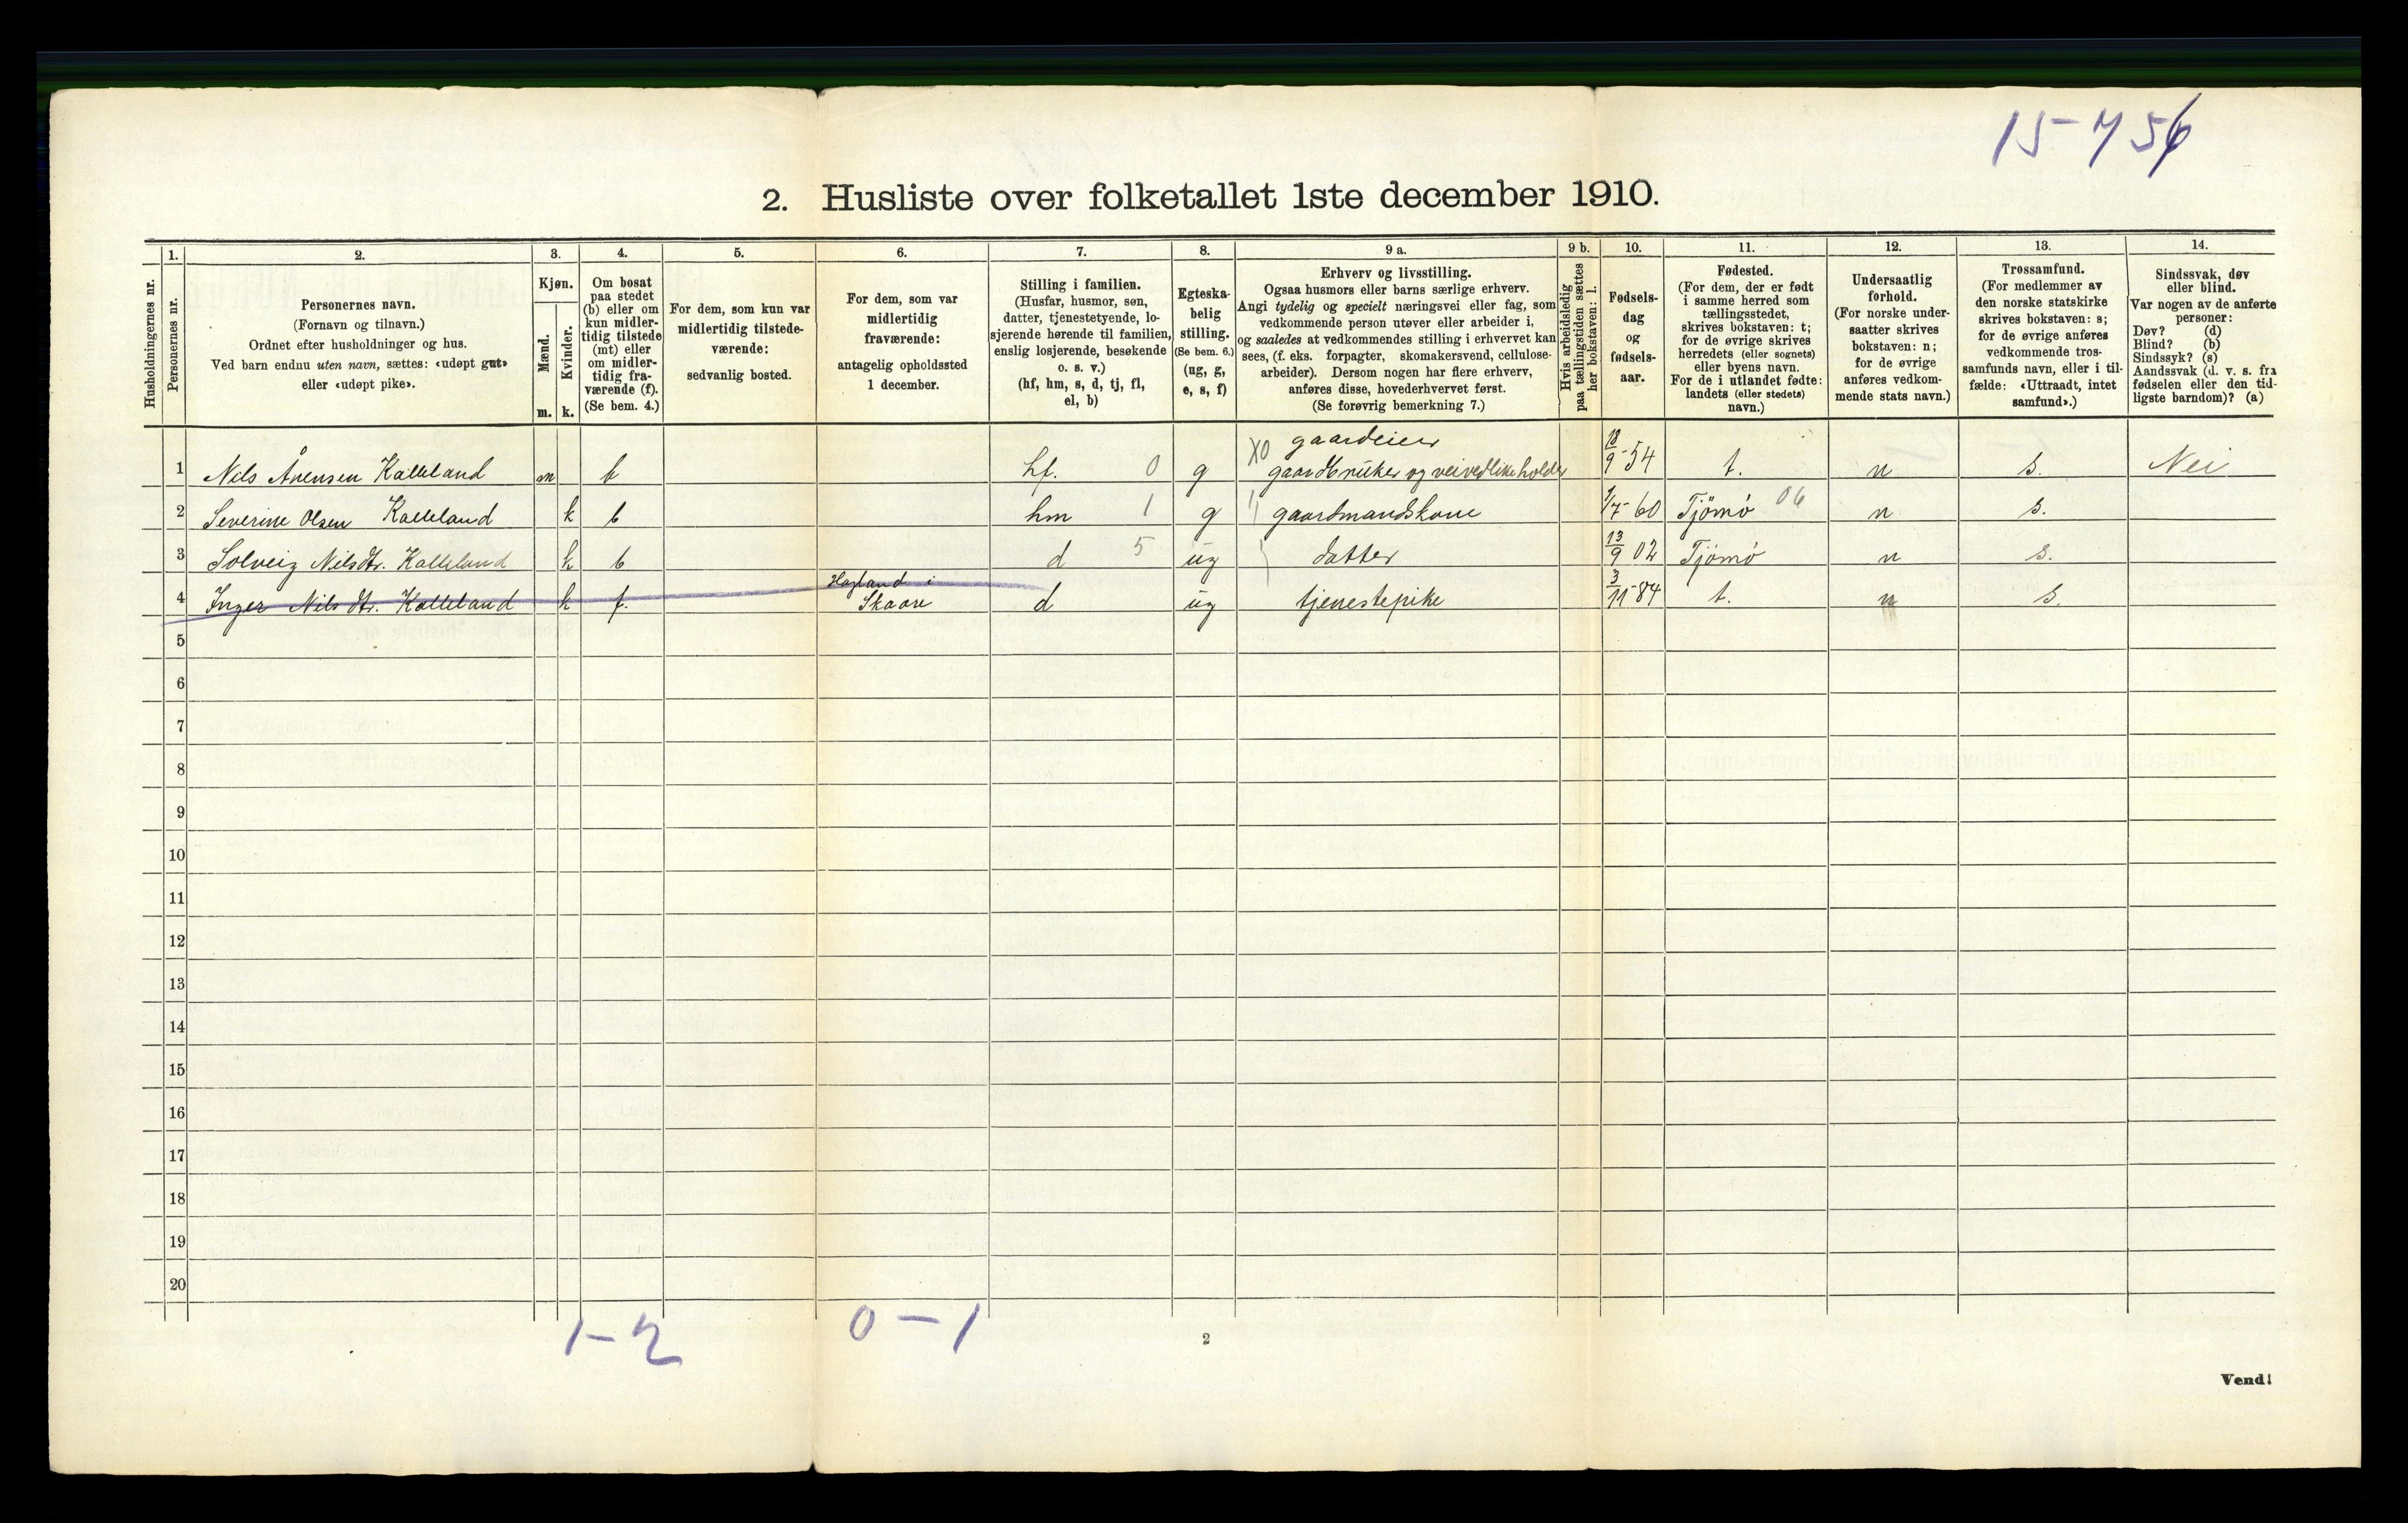 15-756
2. Husliste over folketallet 1ste december 1910.
Husholdningernes nr.
1. Personernes nr.
2. Personernes navn.
(Fornavn og tilnavn.)
Ordnet efter husholdninger og hus.
Ved barn endnu uten navn, sættes: «udøpt gut»
eller «udøpt pike».
3. Kjøn.
Mænd. m.
Kvinder. k.
4. Om bosat
paa stedet
(b) eller om
kun midler-
tidig tilstede
(mt) eller
om midler-
tidig fra-
værende (f).
(Se bem. 4.)
5. For dem, som kun var
midlertidig tilstede-
værende:
sedvanlig bosted.
6. For dem, som var
midlertidig
fraværende:
antagelig opholdssted
1 december.
7. Stilling i familien.
(Husfar, husmor, søn,
datter, tjenestetyende, lo-
sjerende hørende til familien,
enslig losjerende, besøkende
o. s. v.)
(hf, hm, s, d, tj, fl,
el, b)
8. Egteska-
belig
stilling.
(Se bem. 6.)
(ug, g,
e, s, f)
9 a. Erhverv og livsstilling.
Ogsaa husmors eller barns særlige erhverv.
Angi tydelig og specielt næringsvei eller fag, som
vedkommende person utøver eller arbeider i,
og saaledes at vedkommendes stilling i erhvervet kan
sees, (f. eks. forpagter, skomakersvend, cellulose-
arbeider). Dersom nogen har flere erhverv,
anføres disse, hovederhvervet først.
(Se forøvrig bemerkning 7.)
9 b. Hvis arbeidsledig
paa tællingstiden sættes
her bokstaven: l.
10. Fødsels-
dag
og
fødsels-
aar.
11. Fødested.
(For dem, der er født
i samme herred som
tællingsstedet,
skrives bokstaven: t;
for de øvrige skrives
herredets (eller sognets)
eller byens navn.
For de i utlandet fødte:
landets (eller stedets)
navn.)
12. Undersaatlig
forhold.
(For norske under-
saatter skrives
bokstaven: n;
for de øvrige
anføres vedkom-
mende stats navn.)
13. Trossamfund.
(For medlemmer av
den norske statskirke
skrives bokstaven: s;
for de øvrige anføres
vedkommende tros-
samfunds navn, eller i til-
fælde: «Uttraadt, intet
samfund».)
14. Sindssvak, døv
eller blind.
Var nogen av de anførte
personer:
Døv? (d)
Blind? (b)
Sindssyk? (s)
Aandssvak (d. v. s. fra
fødselen eller den tid-
ligste barndom)? (a)
gaardeier
1 Nils Ånensen Kalleland m b hf. 0 g X0 gaardbruker og veivedlikeholder 18/9-54 t. n s. Nei
2 Severine Olsen Kalleland k b hm 1 g gaardmandskone 1/7-60 Tjömö 06 n s.
3 Solveig Nilsdtr. Kalleland k b d 5 ug datter 13/9 02 Tjömö n s.
Hagland i
4 Inger Nilsdtr. Kalleland k f. Skaare d ug tjenestepike 3/11-84 t. n s.
5
6
7
8
9
10
11
12
13
14
15
16
17
18
19
20
1-2 0-1
2
Vend!